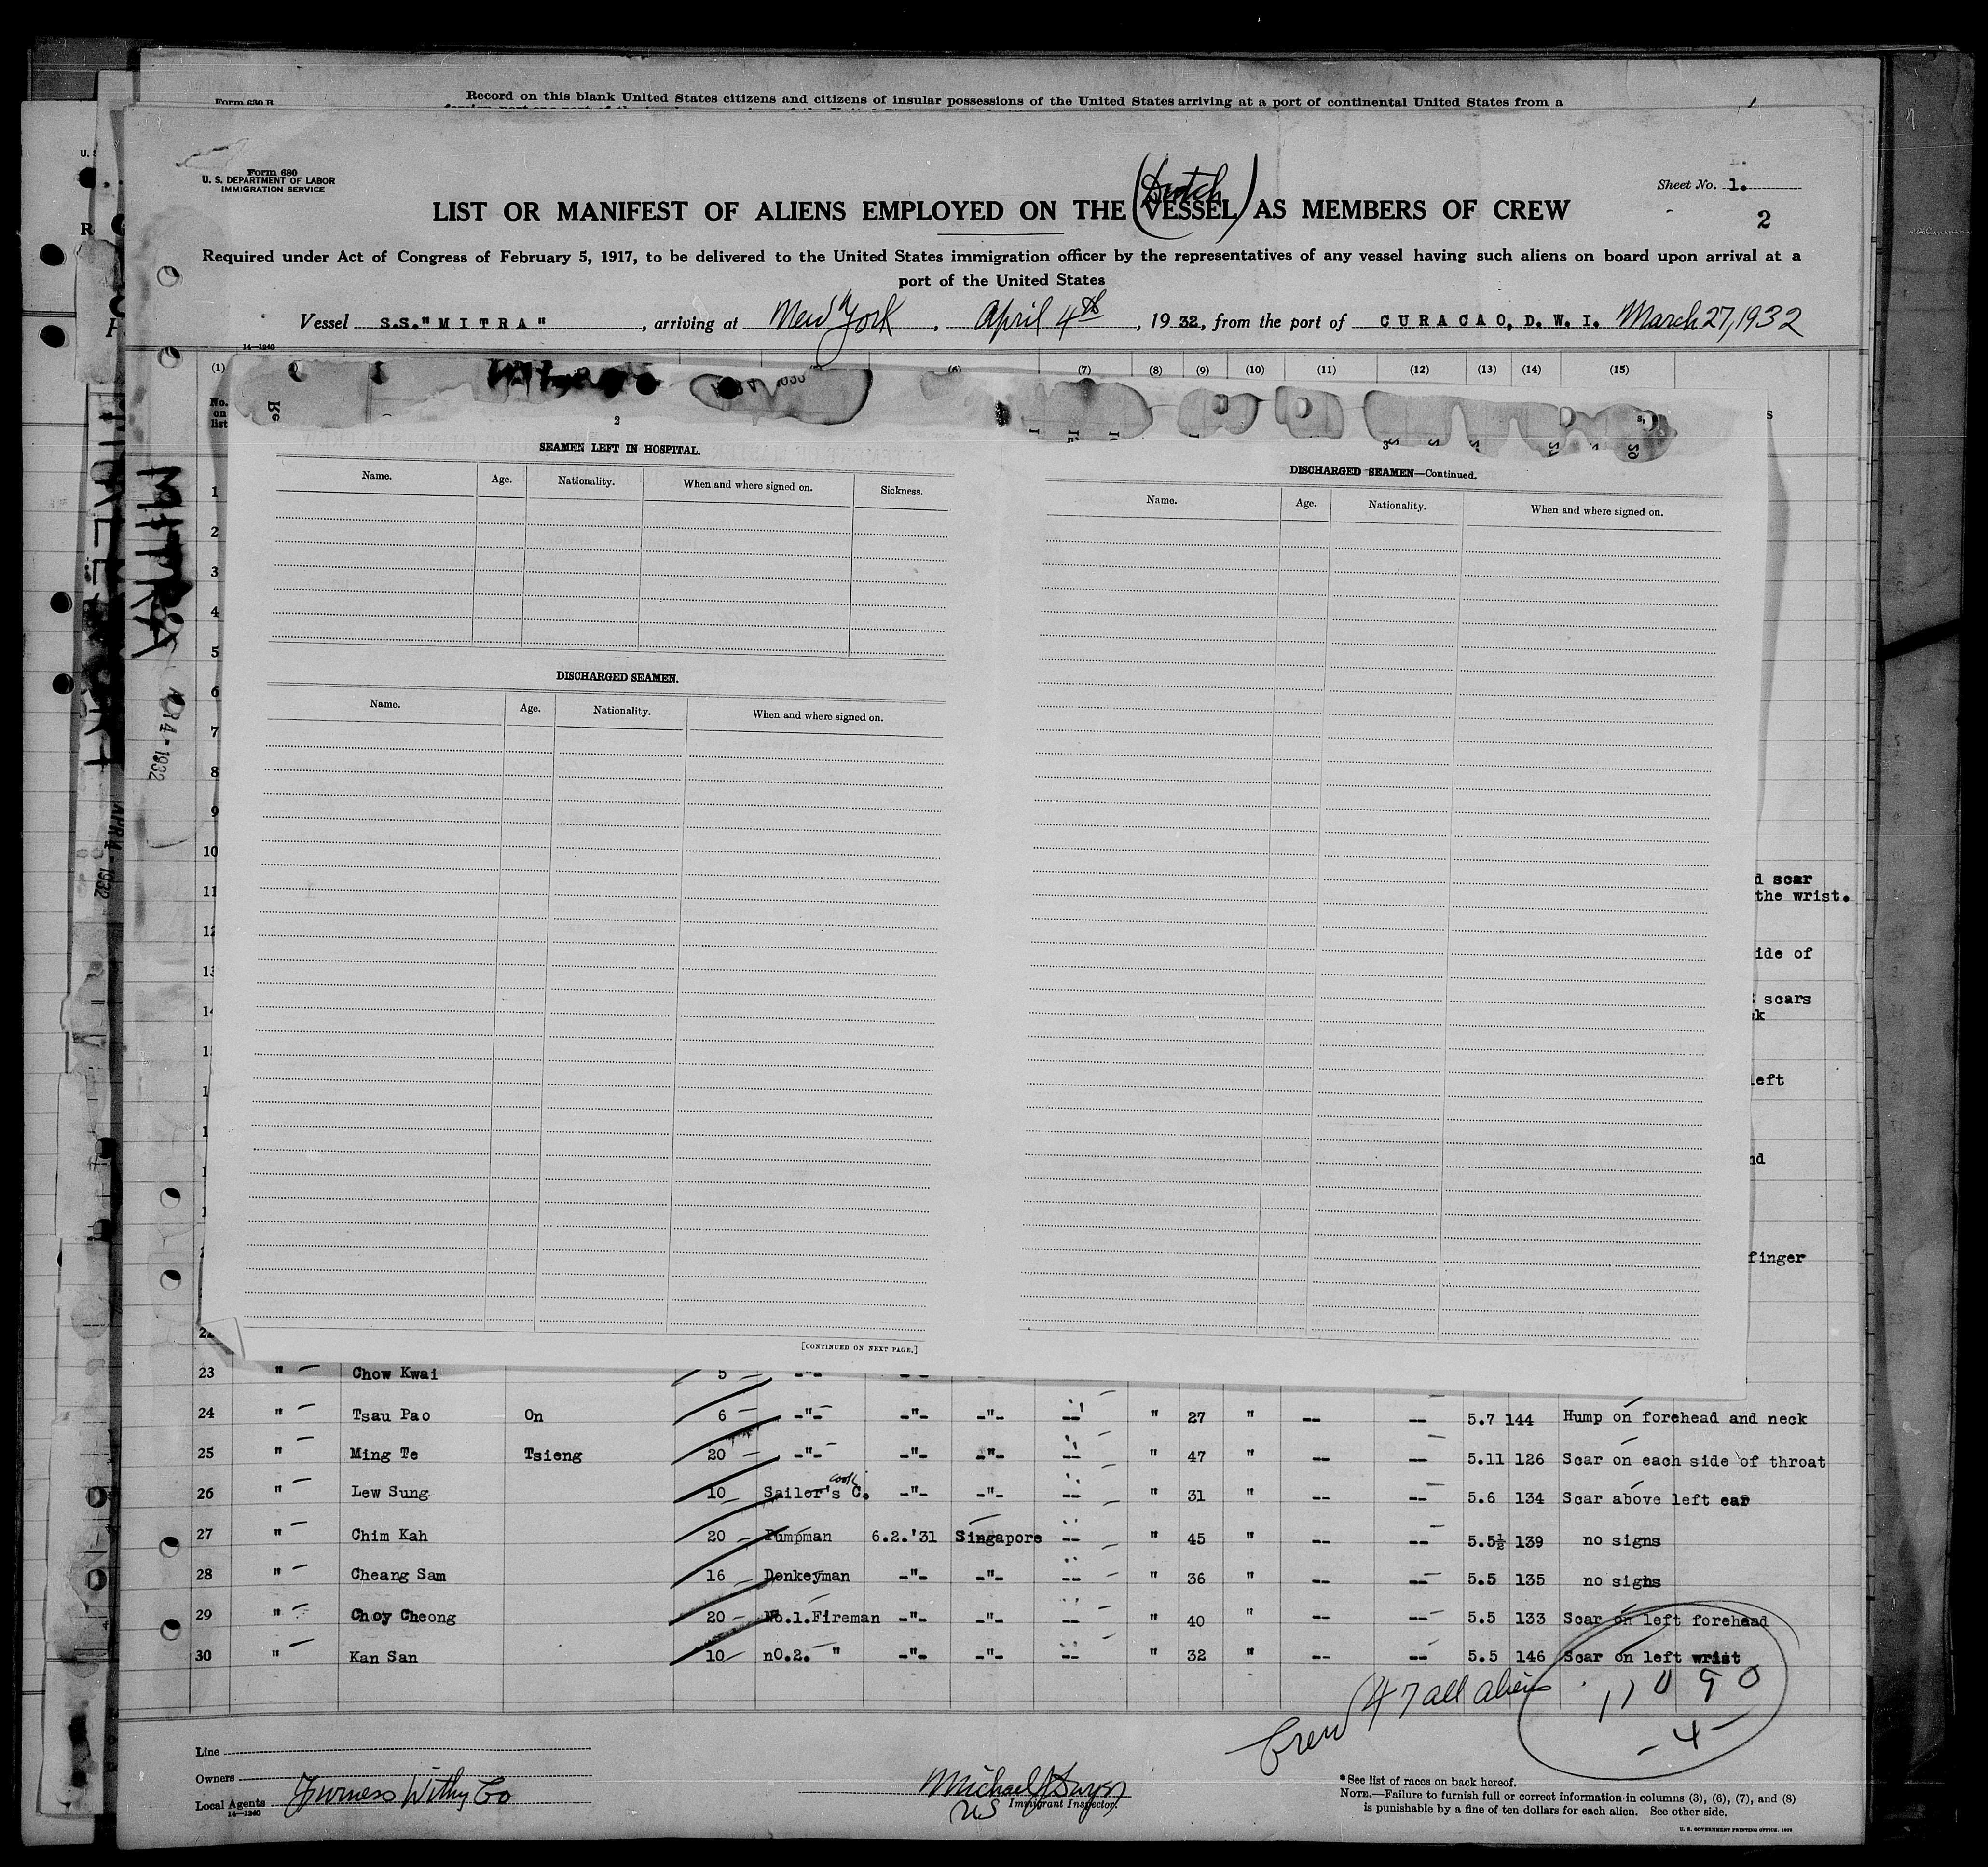 Form 630 B
Record on this blank United States citizens and citizens of insular possessions of the United States arriving at a port of continental United States from a
Form 680
U. S. DEPARTMENT OF LABOR
IMMIGRATION SERVICE
Sheet No. 1.
2
(Dutch)
LIST OR MANIFEST OF ALIENS EMPLOYED ON THE VESSEL AS MEMBERS OF CREW
Required under Act of Congress of February 5, 1917, to be delivered to the United States immigration officer by the representatives of any vessel having such aliens on board upon arrival at a
port of the United States
Vessel S.S."MITRA", arriving at New York, April 4th, 1932, from the port of CURACAO, D. W. I. March 27, 1932
14-1240
(1) (6) (7) (8) (9) (10) (11) (12) (13) (14) (15)
No. on list
MITRA
APR 4-1932
2
SEAMEN LEFT IN HOSPITAL.
Name. Age. Nationality. When and where signed on. Sickness.
DISCHARGED SEAMEN.
Name. Age. Nationality. When and where signed on.
[CONTINUED ON NEXT PAGE.]
DISCHARGED SEAMEN—Continued.
Name. Age. Nationality. When and where signed on.
1
2
3
4
5
6
7
8
9
10
11
12
13
14
scar
the wrist.
of
scars
left
finger
23 " Chow Kwai 5 -"-
24 " Tsau Pao On 6 -"- -"- -"- -- " 27 " -- -- 5.7 144 Hump on forehead and neck
25 " Ming Te Tsieng 20 -"- -"- -"- -- " 47 " -- -- 5.11 126 Scar on each side of throat
26 " Lew Sung 10 Sailor's C. cook -"- -"- -- " 31 " -- -- 5.6 134 Scar above left ear
27 " Chim Kah 20 Pumpman 6.2.'31 Singapore -- " 45 " -- -- 5.5½ 139 no signs
28 " Cheang Sam 16 Donkeyman -"- -"- -- " 36 " -- -- 5.5 135 no signs
29 " Choy Cheong 20 No.1.Fireman -"- -"- -- " 40 " -- -- 5.5 133 Scar on left forehead
30 " Kan San 10 nO.2. " -"- -"- -- " 32 " -- -- 5.5 146 Scar on left wrist
Crew 47 all aliens
- 4 -
Line
Owners
Local Agents Furness Withy Co
14-1240
US Immigrant Inspector.
*See list of races on back hereof.
NOTE.—Failure to furnish full or correct information in columns (3), (6), (7), and (8)
is punishable by a fine of ten dollars for each alien. See other side.
U. S. GOVERNMENT PRINTING OFFICE: 1929